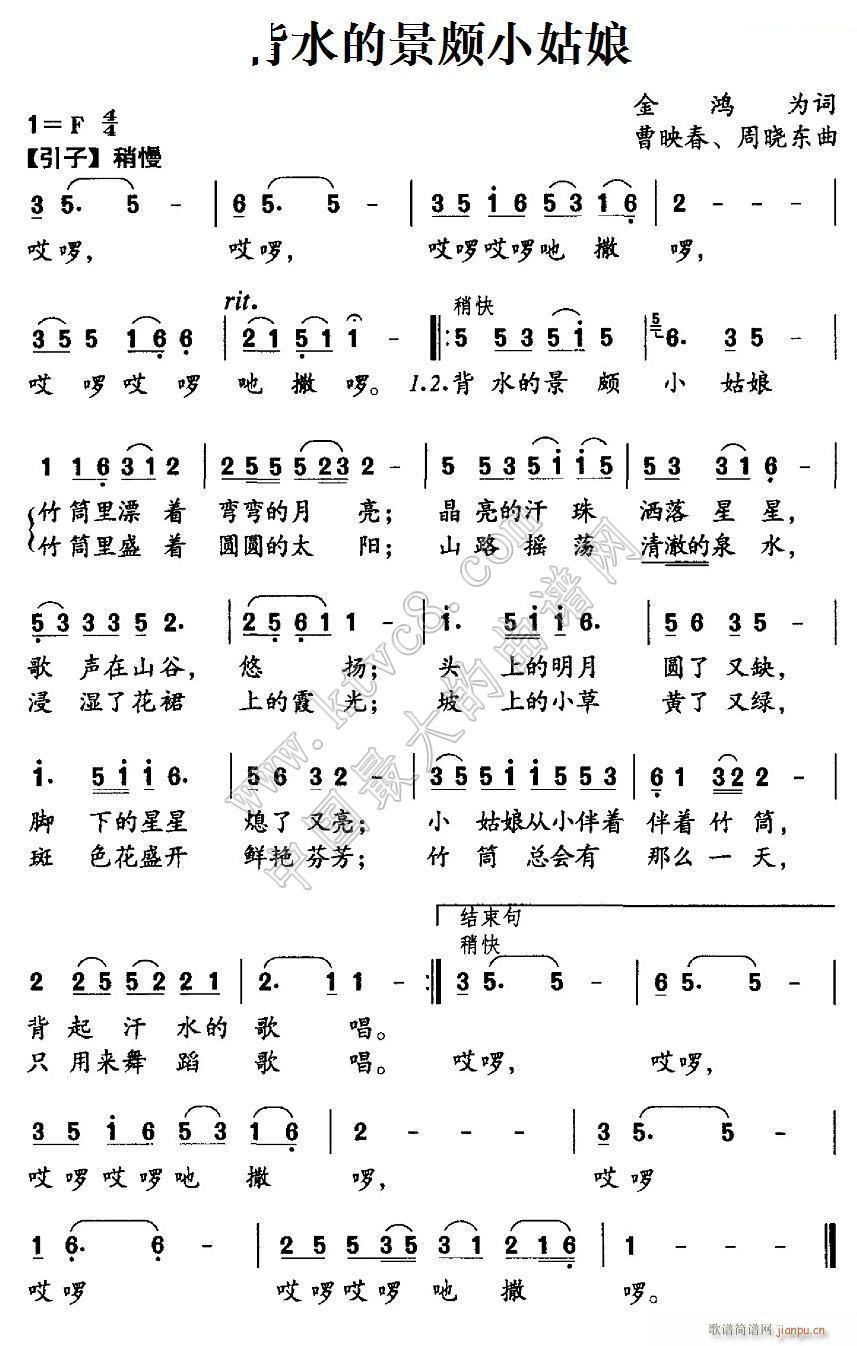 背水的景颇小姑娘
金鸿为词
1=F 4/4
曹映春、周晓东曲
【引子】稍慢
3 5. 5 - | 6 5. 5 - | 3 5 i 6 5 3 1 6 | 2 - - - |
哎啰, 哎啰, 哎啰哎啰吔撒啰,
rit. 稍快
3 5 5 1 6 6 | 2 1 5 1 1 - ‖: 5 5 3 5 i 5 | 5 6. 3 5 - |
哎啰哎啰吔撒啰。 1.2.背水的景颇小姑娘
1 1 6 3 1 2 | 2 5 5 5 2 3 2 - | 5 5 3 5 i i 5 | 5 3 3 1 6 - |
竹筒里漂着弯弯的月亮; 晶亮的汗珠洒落星星,
竹筒里盛着圆圆的太阳; 山路摇荡清澈的泉水,
5 3 3 3 5 2. | 2 5 6 1 1 - | i. 5 i i 6. | 5 6 3 5 - |
歌声在山谷,悠扬; 头上的明月圆了又缺,
浸湿了花裙上的霞光; 坡上的小草黄了又绿,
i. 5 i i 6. | 5 6 3 2 - | 3 5 5 i i 5 5 3 | 6 1 3 2 2 - |
脚下的星星熄了又亮; 小姑娘从小伴着伴着竹筒,
斑色花盛开鲜艳芬芳; 竹筒总会有那么一天,
结束句
稍快
2 2 5 5 2 2 1 | 2. 1 1 - :‖ 3 5. 5 - | 6 5. 5 - |
背起汗水的歌唱。
只用来舞蹈歌唱。 哎啰, 哎啰,
3 5 i 6 5 3 1 6 | 2 - - - | 3 5. 5 - |
哎啰哎啰吔撒啰, 哎啰
1 6. 6 - | 2 5 5 3 5 3 1 2 1 6 | 1 - - - ‖
哎啰 哎啰哎啰吔撒啰。
www.ktvc8.com
中国最大的曲谱网
歌谱简谱网
jianpu.cn